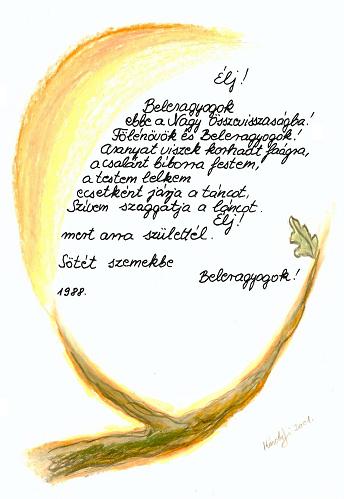 Élj!
Beleragyogok
ebbe a Nagy Összevisszaságba!
Fölénövök és Beleragyogok!
Aranyat viszek korhadt faágra,
a csalánt bíborra festem,
a testem lelkem
ecsetként járja a táncot,
Szívem szaggatja a láncot.
Élj!
mert arra születtél.
Sötét szemekbe
Beleragyogok!
1988.
2001.